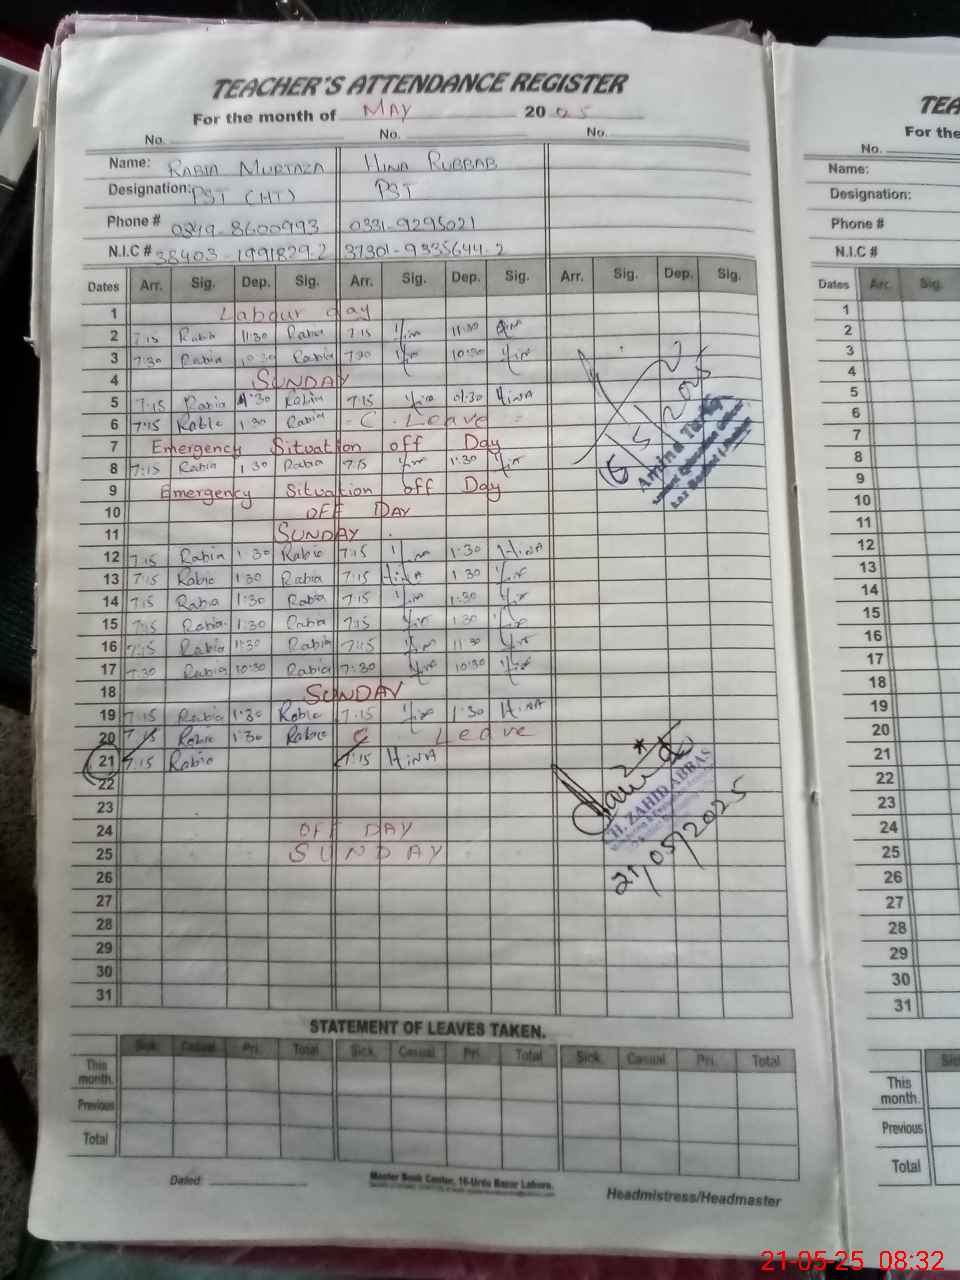 TEACHER'S ATTENDANCE REGISTER
For the month of MAY 2025
No. No. No.
Name: RABIA MURTAZA HINA RUBBAB
Designation: PST (HT) PST
Phone # 0349-8600993 0331-9295021
N.I.C # 38403-1991829-2 37301-9335644-2
Dates Arr. Sig. Dep. Sig. Arr. Sig. Dep. Sig. Arr. Sig. Dep. Sig.
1 Labour day
2 7:15 Rabia 11:30 Rabia 7:15 11:30
3 7:30 Rabia 10:30 Rabia 7:30 10:30
4 SUNDAY
5 7:15 Rabia 1:30 Rabia 7:15 01:30 HINA
6 7:15 Rabia 1 30 Rabia C. Leave
7 Emergency Situation off Day
8 7:15 Rabia 1 30 Rabia 7:15 1:30
9 Emergency Situation off Day
10 OFF DAY
11 SUNDAY
12 7:15 Rabia 1 30 Rabia 7:15 1:30 HINA
13 7:15 Rabia 1 30 Rabia 7:15 HINA 1 30
14 7:15 Rabia 1:30 Rabia 7:15 1:30
15 7:15 Rabia 1:30 Rabia 7:15 1 30
16 7:15 Rabia 11:30 Rabia 7:15 11 30
17 7:30 Rabia 10:30 Rabia 7:30 10:30
18 SUNDAY
19 7:15 Rabia 1:30 Rabia 7:15 1:30 HINA
20 7:15 Rabia 1:30 Rabia C Leave
21 7:15 Rabia 7:15 HINA
22
23
24 OFF DAY
25 SUNDAY
26
27
28
29
30
31
6/5/2025
H. ZAHID ABBAS
21/05/2025
STATEMENT OF LEAVES TAKEN.
Sick. Casual. Pri. Total Sick. Casual. Pri. Total Sick. Casual. Pri. Total
This month.
Previous
Total
Dated:
Master Book Center, 16-Urdu Bazar Lahore.
Headmistress/Headmaster
TEA
For the
No.
Name:
Designation:
Phone #
N.I.C #
Dates Arr. Sig.
1
2
3
4
5
6
7
8
9
10
11
12
13
14
15
16
17
18
19
20
21
22
23
24
25
26
27
28
29
30
31
This month.
Previous
Total
21-05-25 08:32